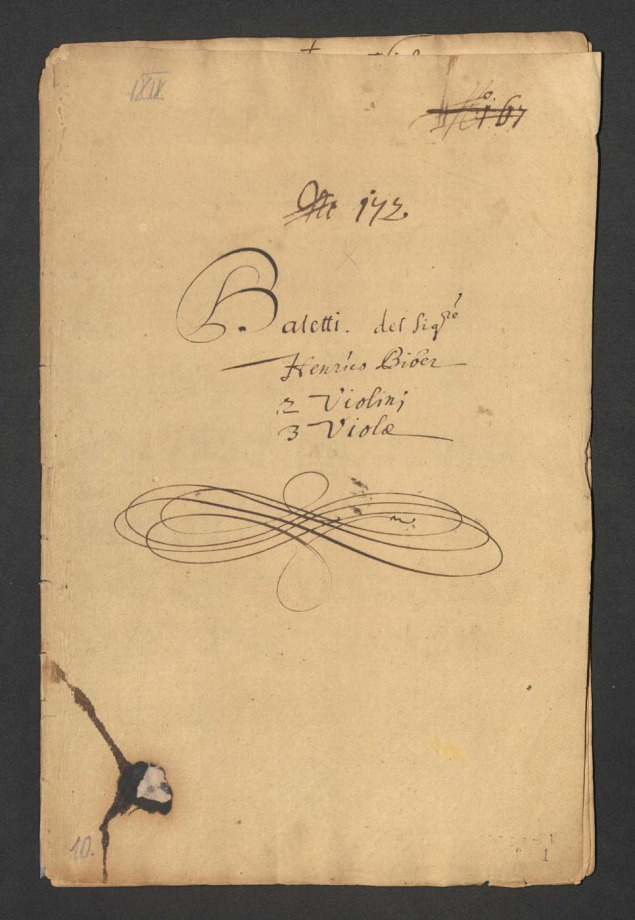 IXIV
No. 167
No 172
Baletti. del Sigre
Henrico Biber
2 Violini
3 Violæ
10.
1